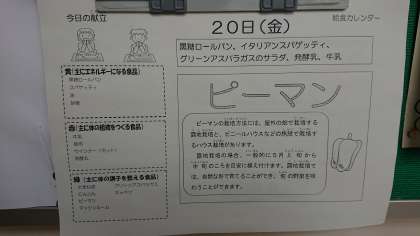 今日の献立
給食カレンダー
20日(金)
黒糖ロールパン、イタリアンスパゲッティ、
グリーンアスパラガスのサラダ、発酵乳、牛乳
黄(主にエネルギーになる食品)
黒糖ロールパン
スパゲッティ
油
砂糖
赤(主に体の組織をつくる食品)
牛乳
豚肉
ウインナー
発酵乳
緑(主に体の調子を整える食品)
たまねぎ グリーンアスパラガス
にんじん キャベツ
ピーマン
マッシュルーム
ピーマン
ピーマンの栽培方法には、屋外の畑で栽培する
露地栽培と、ビニールハウスなどの施設で栽培す
るハウス栽培があります。
露地栽培の場合、一般的に5月上旬から
中旬のころを目安に植え付けます。露地栽培で
は、自然な形で育てることができ、旬の野菜を味
わうことができます。